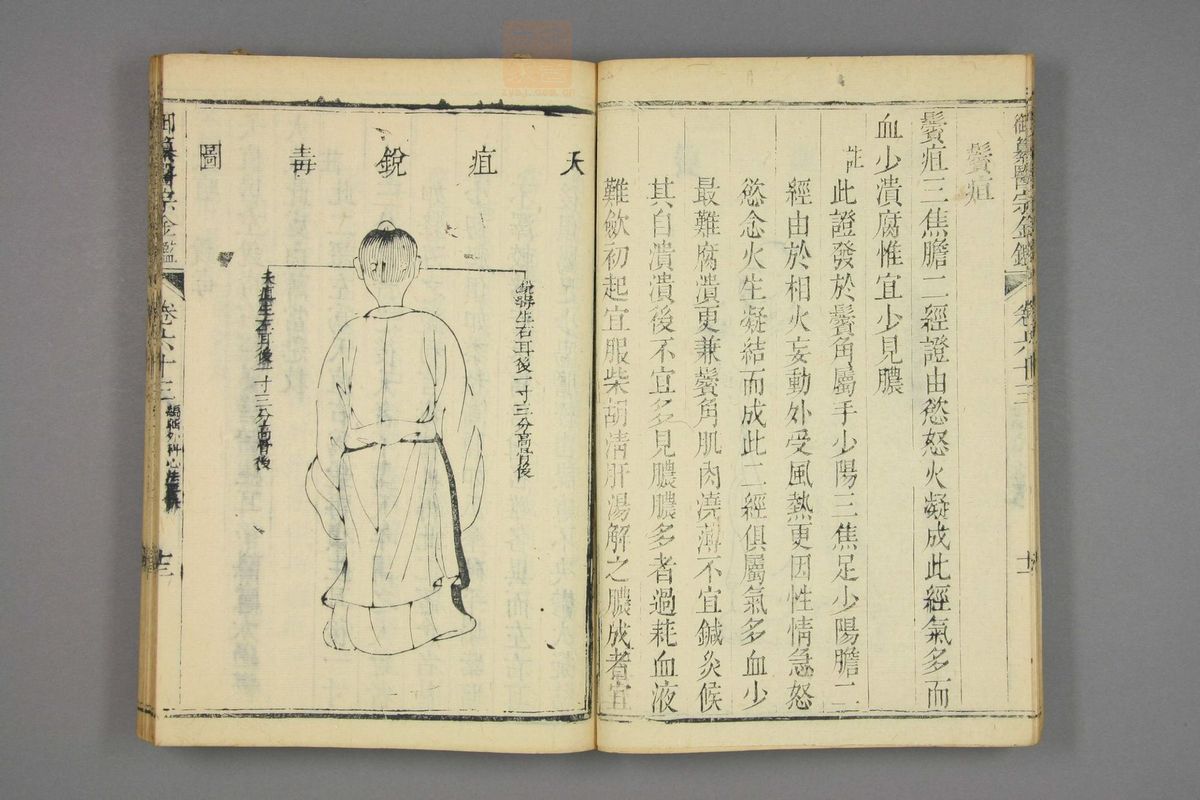 御纂醫宗金鑑 卷六十三 十一
鬢疽
鬢疽三焦膽二經證由慾怒火凝成此經氣多而
血少潰腐惟宜少見膿
註
此證發於鬢角屬手少陽三焦足少陽膽二
經由於相火妄動外受風熱更因性情急怒
慾念火生凝結而成此二經俱屬氣多血少
最難腐潰更兼鬢角肌肉澆薄不宜鍼灸候
其自潰潰後不宜多見膿膿多者過耗血液
難斂初起宜服柴胡清肝湯解之膿成者宜
天疽銳毒圖
銳毒生右耳後一寸三分高骨後
天疽生左耳後一寸三分高骨後
御纂醫宗金鑑 卷六十三 十二